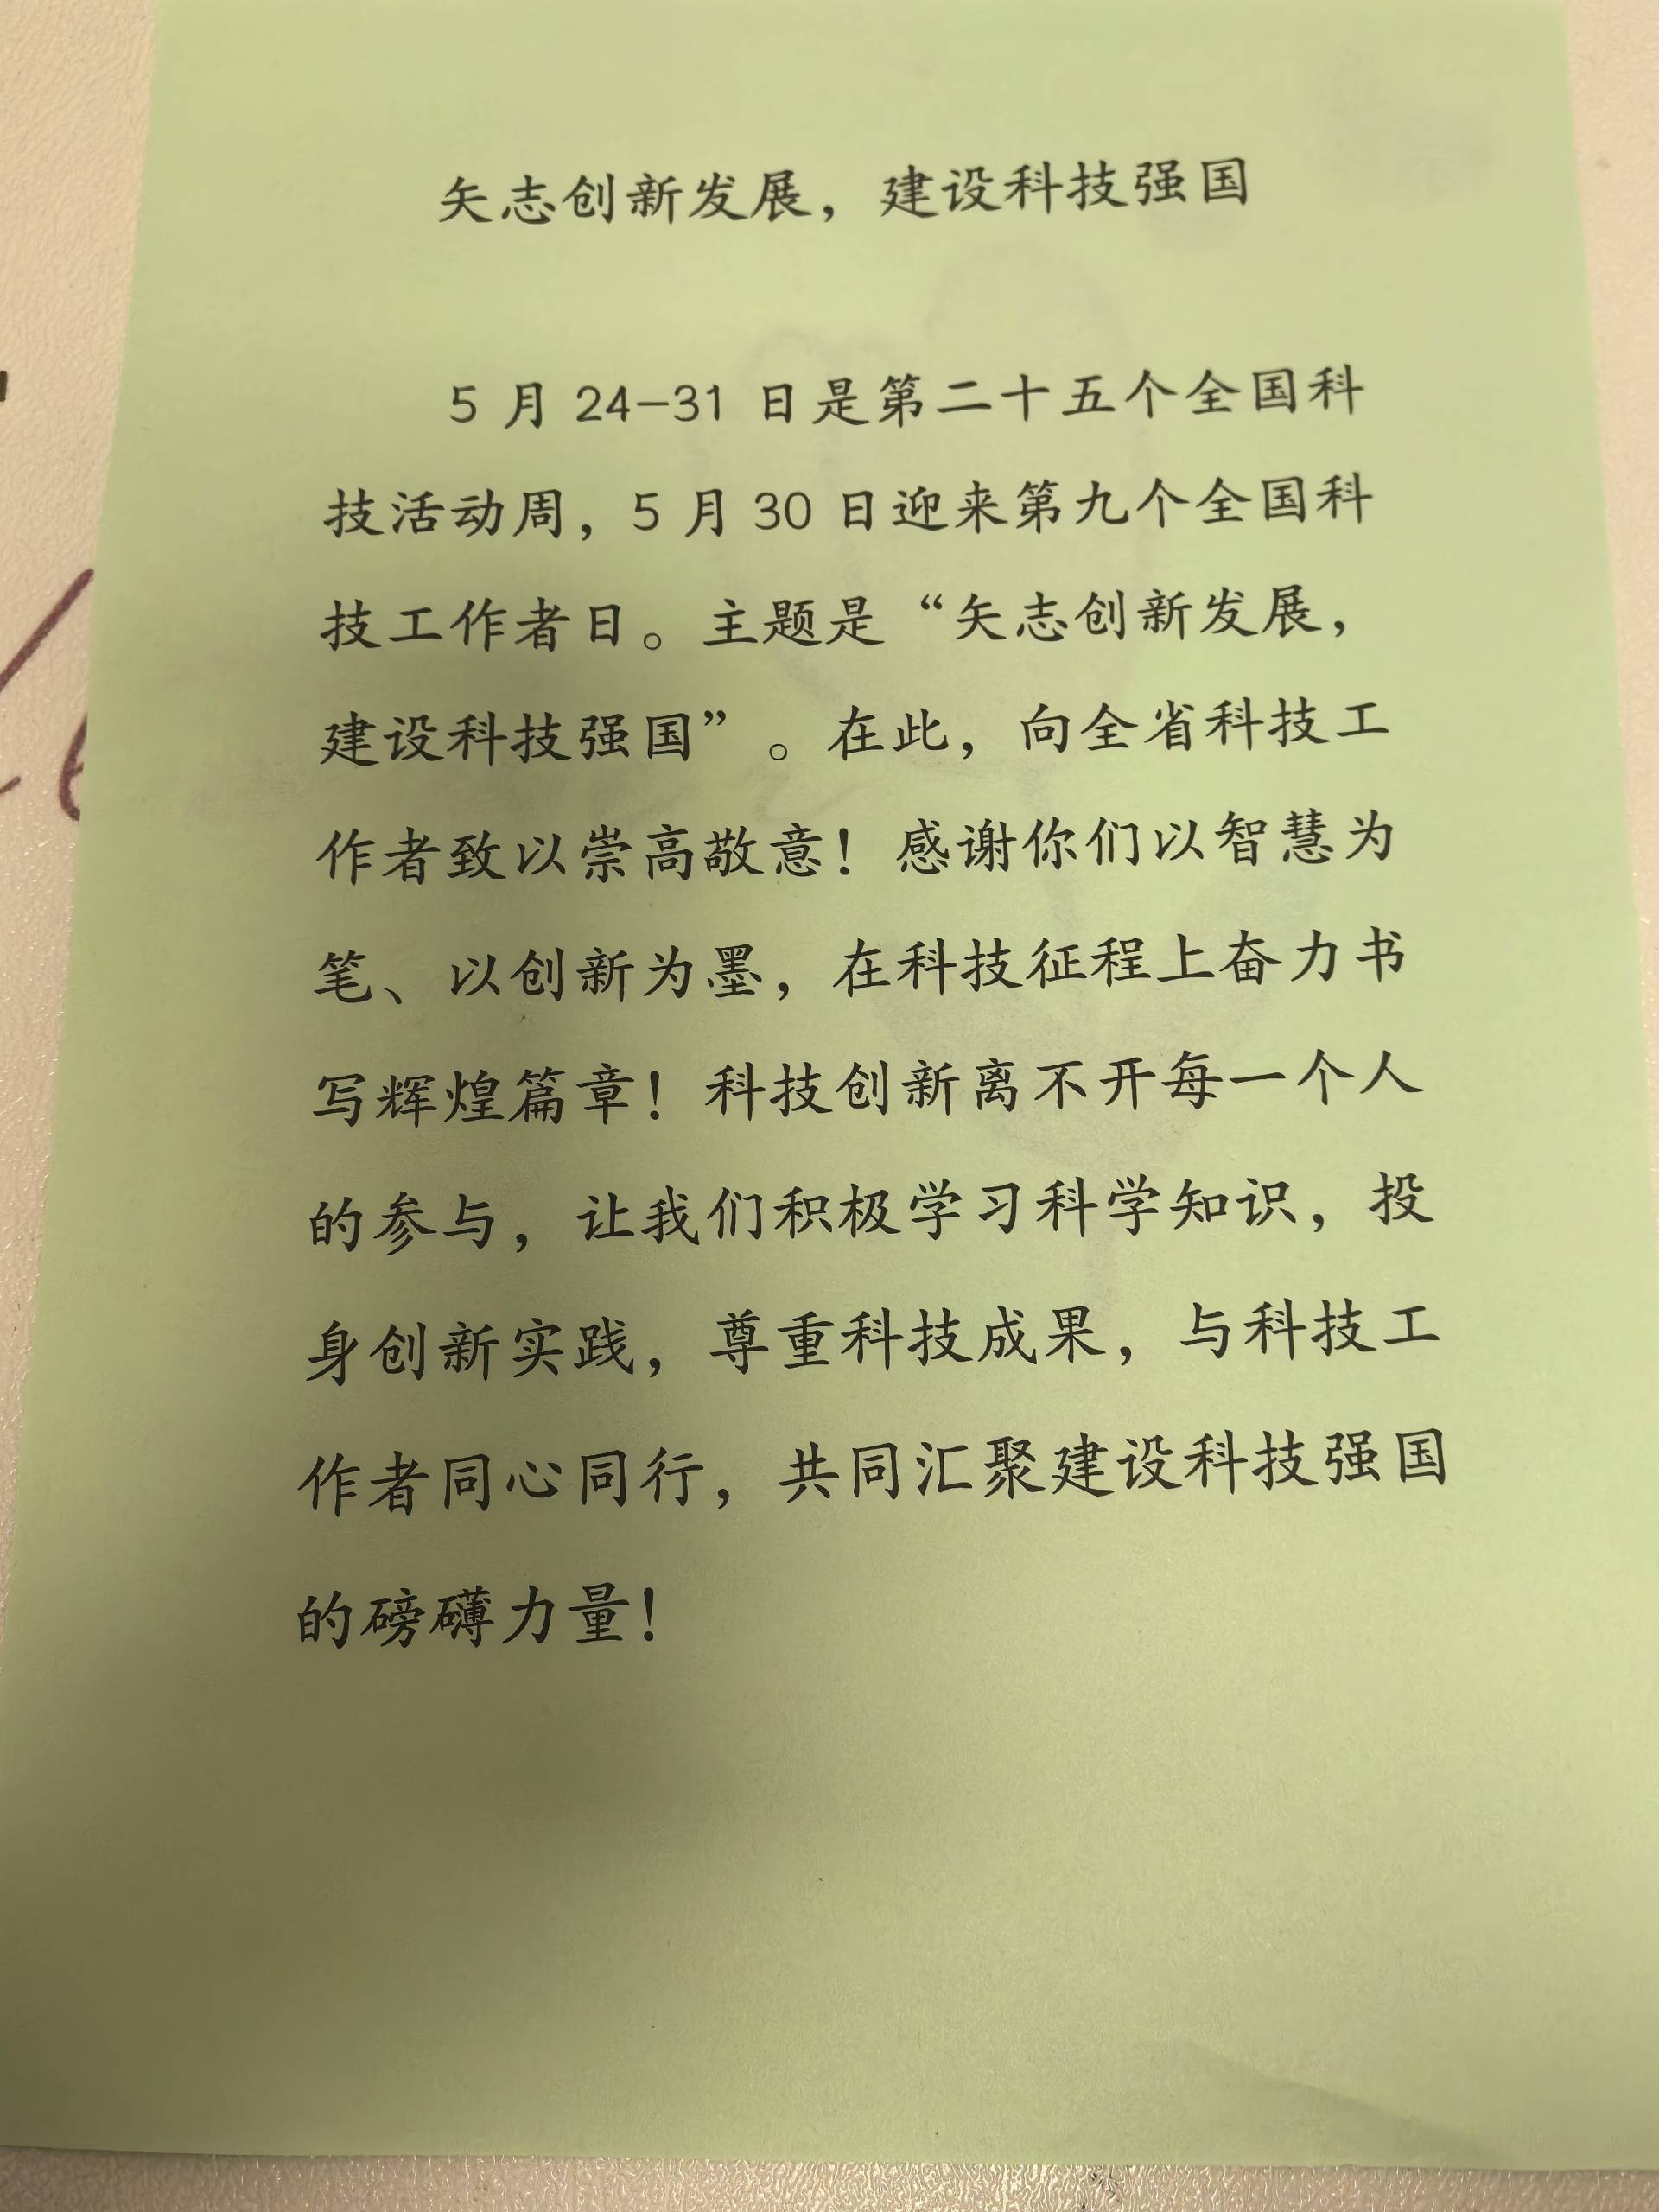 矢志创新发展，建设科技强国
5 月 24-31 日是第二十五个全国科
技活动周，5 月 30 日迎来第九个全国科
技工作者日。主题是“矢志创新发展，
建设科技强国”。在此，向全省科技工
作者致以崇高敬意！感谢你们以智慧为
笔、以创新为墨，在科技征程上奋力书
写辉煌篇章！科技创新离不开每一个人
的参与，让我们积极学习科学知识，投
身创新实践，尊重科技成果，与科技工
作者同心同行，共同汇聚建设科技强国
的磅礴力量！